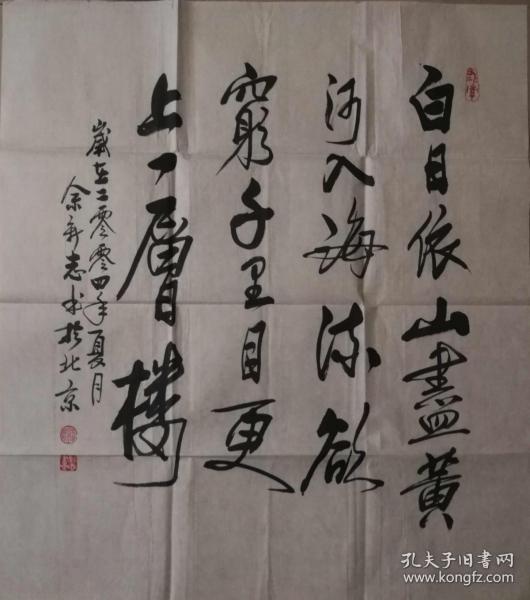 白日依山盡黃
河入海流欲
窮千里目更
上一層楼
歲在二零零四年夏月
余新志书於北京
孔夫子旧书网
www.kongfz.com